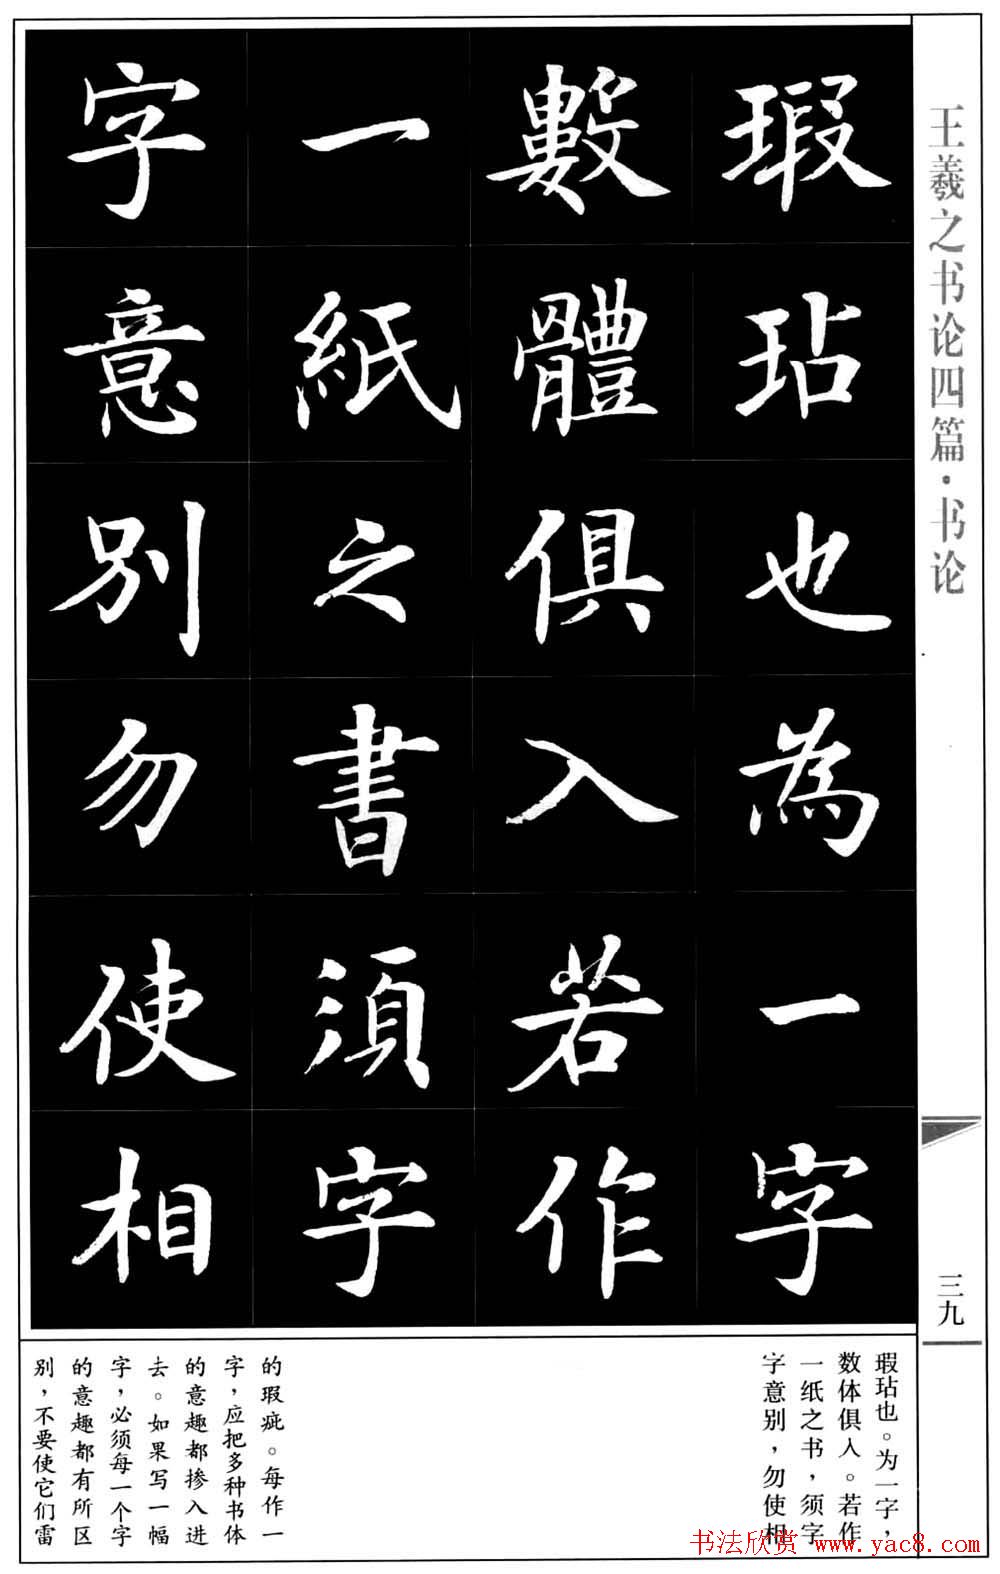 王羲之书论四篇·书论
瑕玷也為一字
數體俱入若作
一紙之書須字
字意別勿使相
三九
瑕玷也。为一字，
数体俱入。若作
一纸之书，须字
字意别，勿使相
的瑕疵。每作一
字，应把多种书体
的意趣都掺入进
去。如果写一幅
字，必须每一个字
的意趣都有所区
别，不要使它们雷
书法欣赏 www.yac8.com